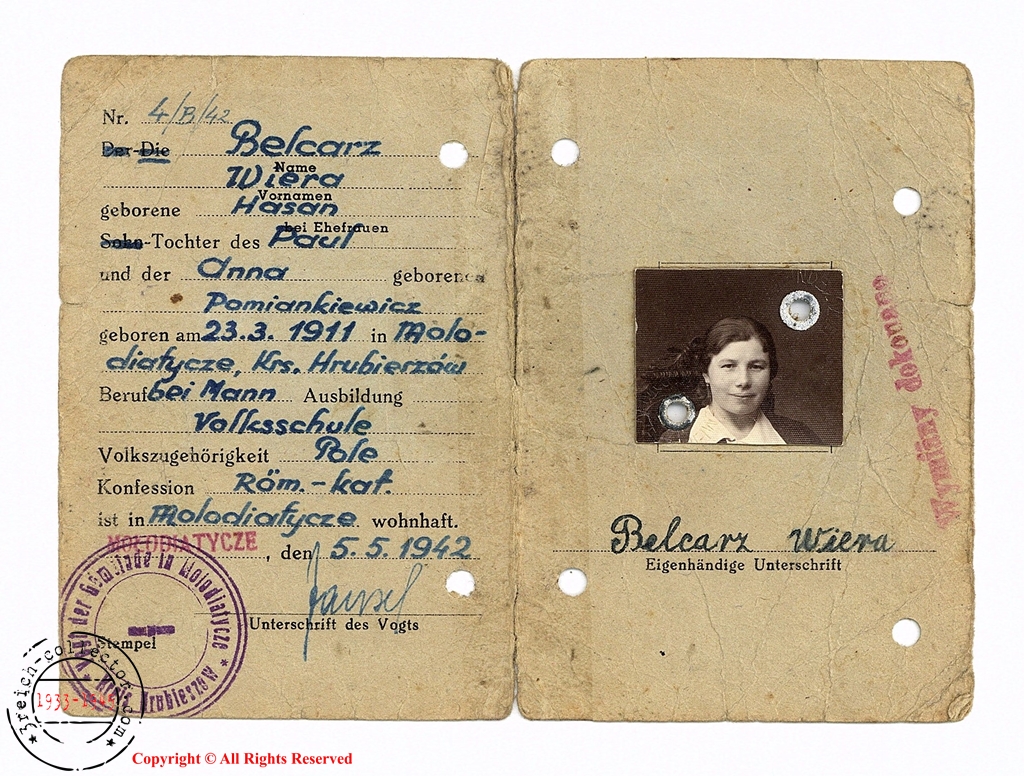 Nr. 4/B/42
Der-Die Belcarz
Name
Wiera
Vornamen
geborene Hasan
bei Ehefrauen
Sohn-Tochter des Paul
und der Anna geborenen
Pomiankiewicz
geboren am 23.3. 1911 in Molo-
diatycze, Krs. Hrubierzów
Beruf bei Mann Ausbildung
Volksschule
Volkszugehörigkeit Pole
Konfession Röm.-kat.
ist in Molodiatycze wohnhaft.
MOLODIATYCZE, den 5. 5. 1942
Unterschrift des Vogts
Stempel
Vogt der Gemeinde in Molodiatycze
Kreis Hrubieszow
Wymiany dokonano
Belcarz Wiera
Eigenhändige Unterschrift
3reich-collector.com
1933-1945
Copyright © All Rights Reserved